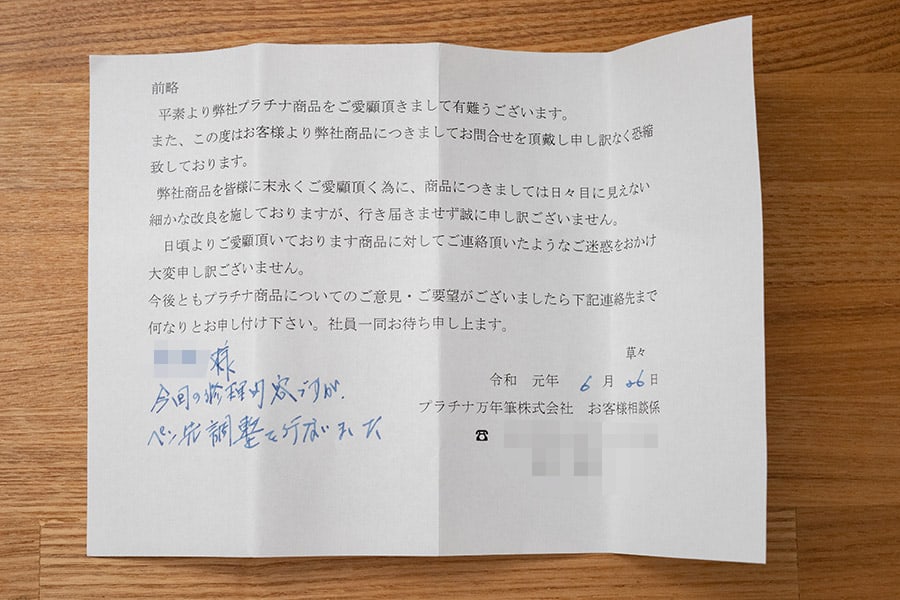 前略
平素より弊社プラチナ商品をご愛顧頂きまして有難うございます。
また、この度はお客様より弊社商品につきましてお問合せを頂戴し申し訳なく恐縮
致しております。
弊社商品を皆様に末永くご愛顧頂く為に、商品につきましては日々目に見えない
細かな改良を施しておりますが、行き届きませず誠に申し訳ございません。
日頃よりご愛顧頂いております商品に対してご連絡頂いたようなご迷惑をおかけ
大変申し訳ございません。
今後ともプラチナ商品についてのご意見・ご要望がございましたら下記連絡先まで
何なりとお申し付け下さい。社員一同お待ち申し上ます。
草々
令和 元年 6月26日
プラチナ万年筆株式会社 お客様相談係
☎
様
今回の修理内容ですが、
ペン先調整を行ないました